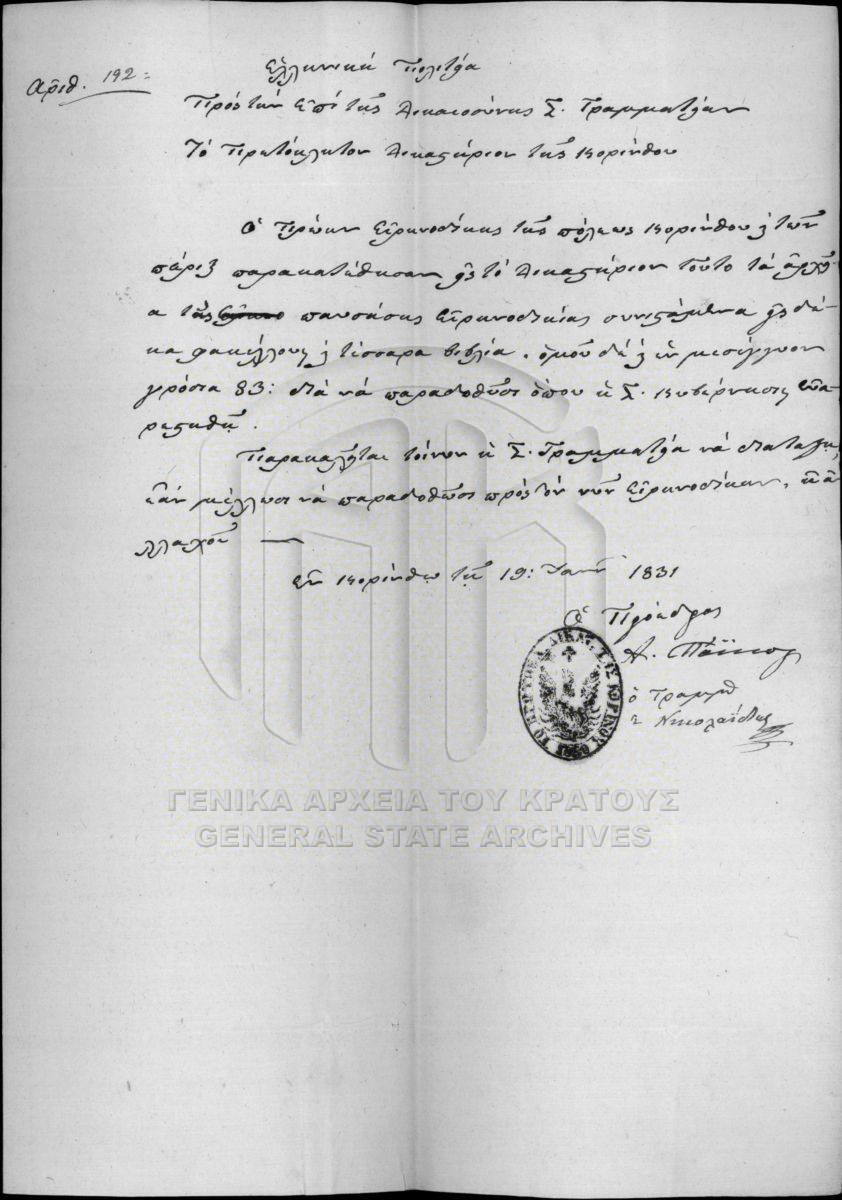 Ἀριθ. 192=
Ἑλληνικὴ Πολιτεία
Πρὸς τὴν Ἐπὶ τῆς Δικαιοσύνης Σ. Γραμματείαν
Τὸ Πρωτόκλητον Δικαστήριον τῆς Κορίνθου
Ὁ Πρώην Εἰρηνοδίκης τῆς πόλεως Κορίνθου ϗ τῶν
πέριξ παρακατέθησεν εἰς τὸ Δικαστήριον τοῦτο τὰ ἀρχεῖ-
α τῆς παυσάσης Εἰρηνοδικίας συνιστάμενα εἰς δέ-
κα φακέλλους ϗ τέσσαρα βιβλία, ὁμοῦ δὲ ϗ ἓν μεσέγγυον
γρόσια 83: διὰ νὰ παραδοθῶσι ὅπου ἡ Σ. Κυβέρνησις εὐα-
ρεστηθῇ.
Παρακαλεῖται τοίνυν ἡ Σ. Γραμματεία νὰ διατάξῃ,
ἐὰν μέλλωσι νὰ παραδοθῶσι πρὸς τὸν νῦν Εἰρηνοδίκην, ἢ ἀ-
λλαχοῦ —
Ἐν Κορίνθῳ τῇ 19: Ἰανν 1831
Ὁ Πρόεδρος
Α. Πάϊκος
ὁ Γραμμ
Νικολαΐδης
ΤΟ ΠΡΩΤΟΚΛ. ΔΙΚΑΣ. ΤΗΣ ΚΟΡΙΝΘΟΥ 1830
ΓΕΝΙΚΑ ΑΡΧΕΙΑ ΤΟΥ ΚΡΑΤΟΥΣ
GENERAL STATE ARCHIVES